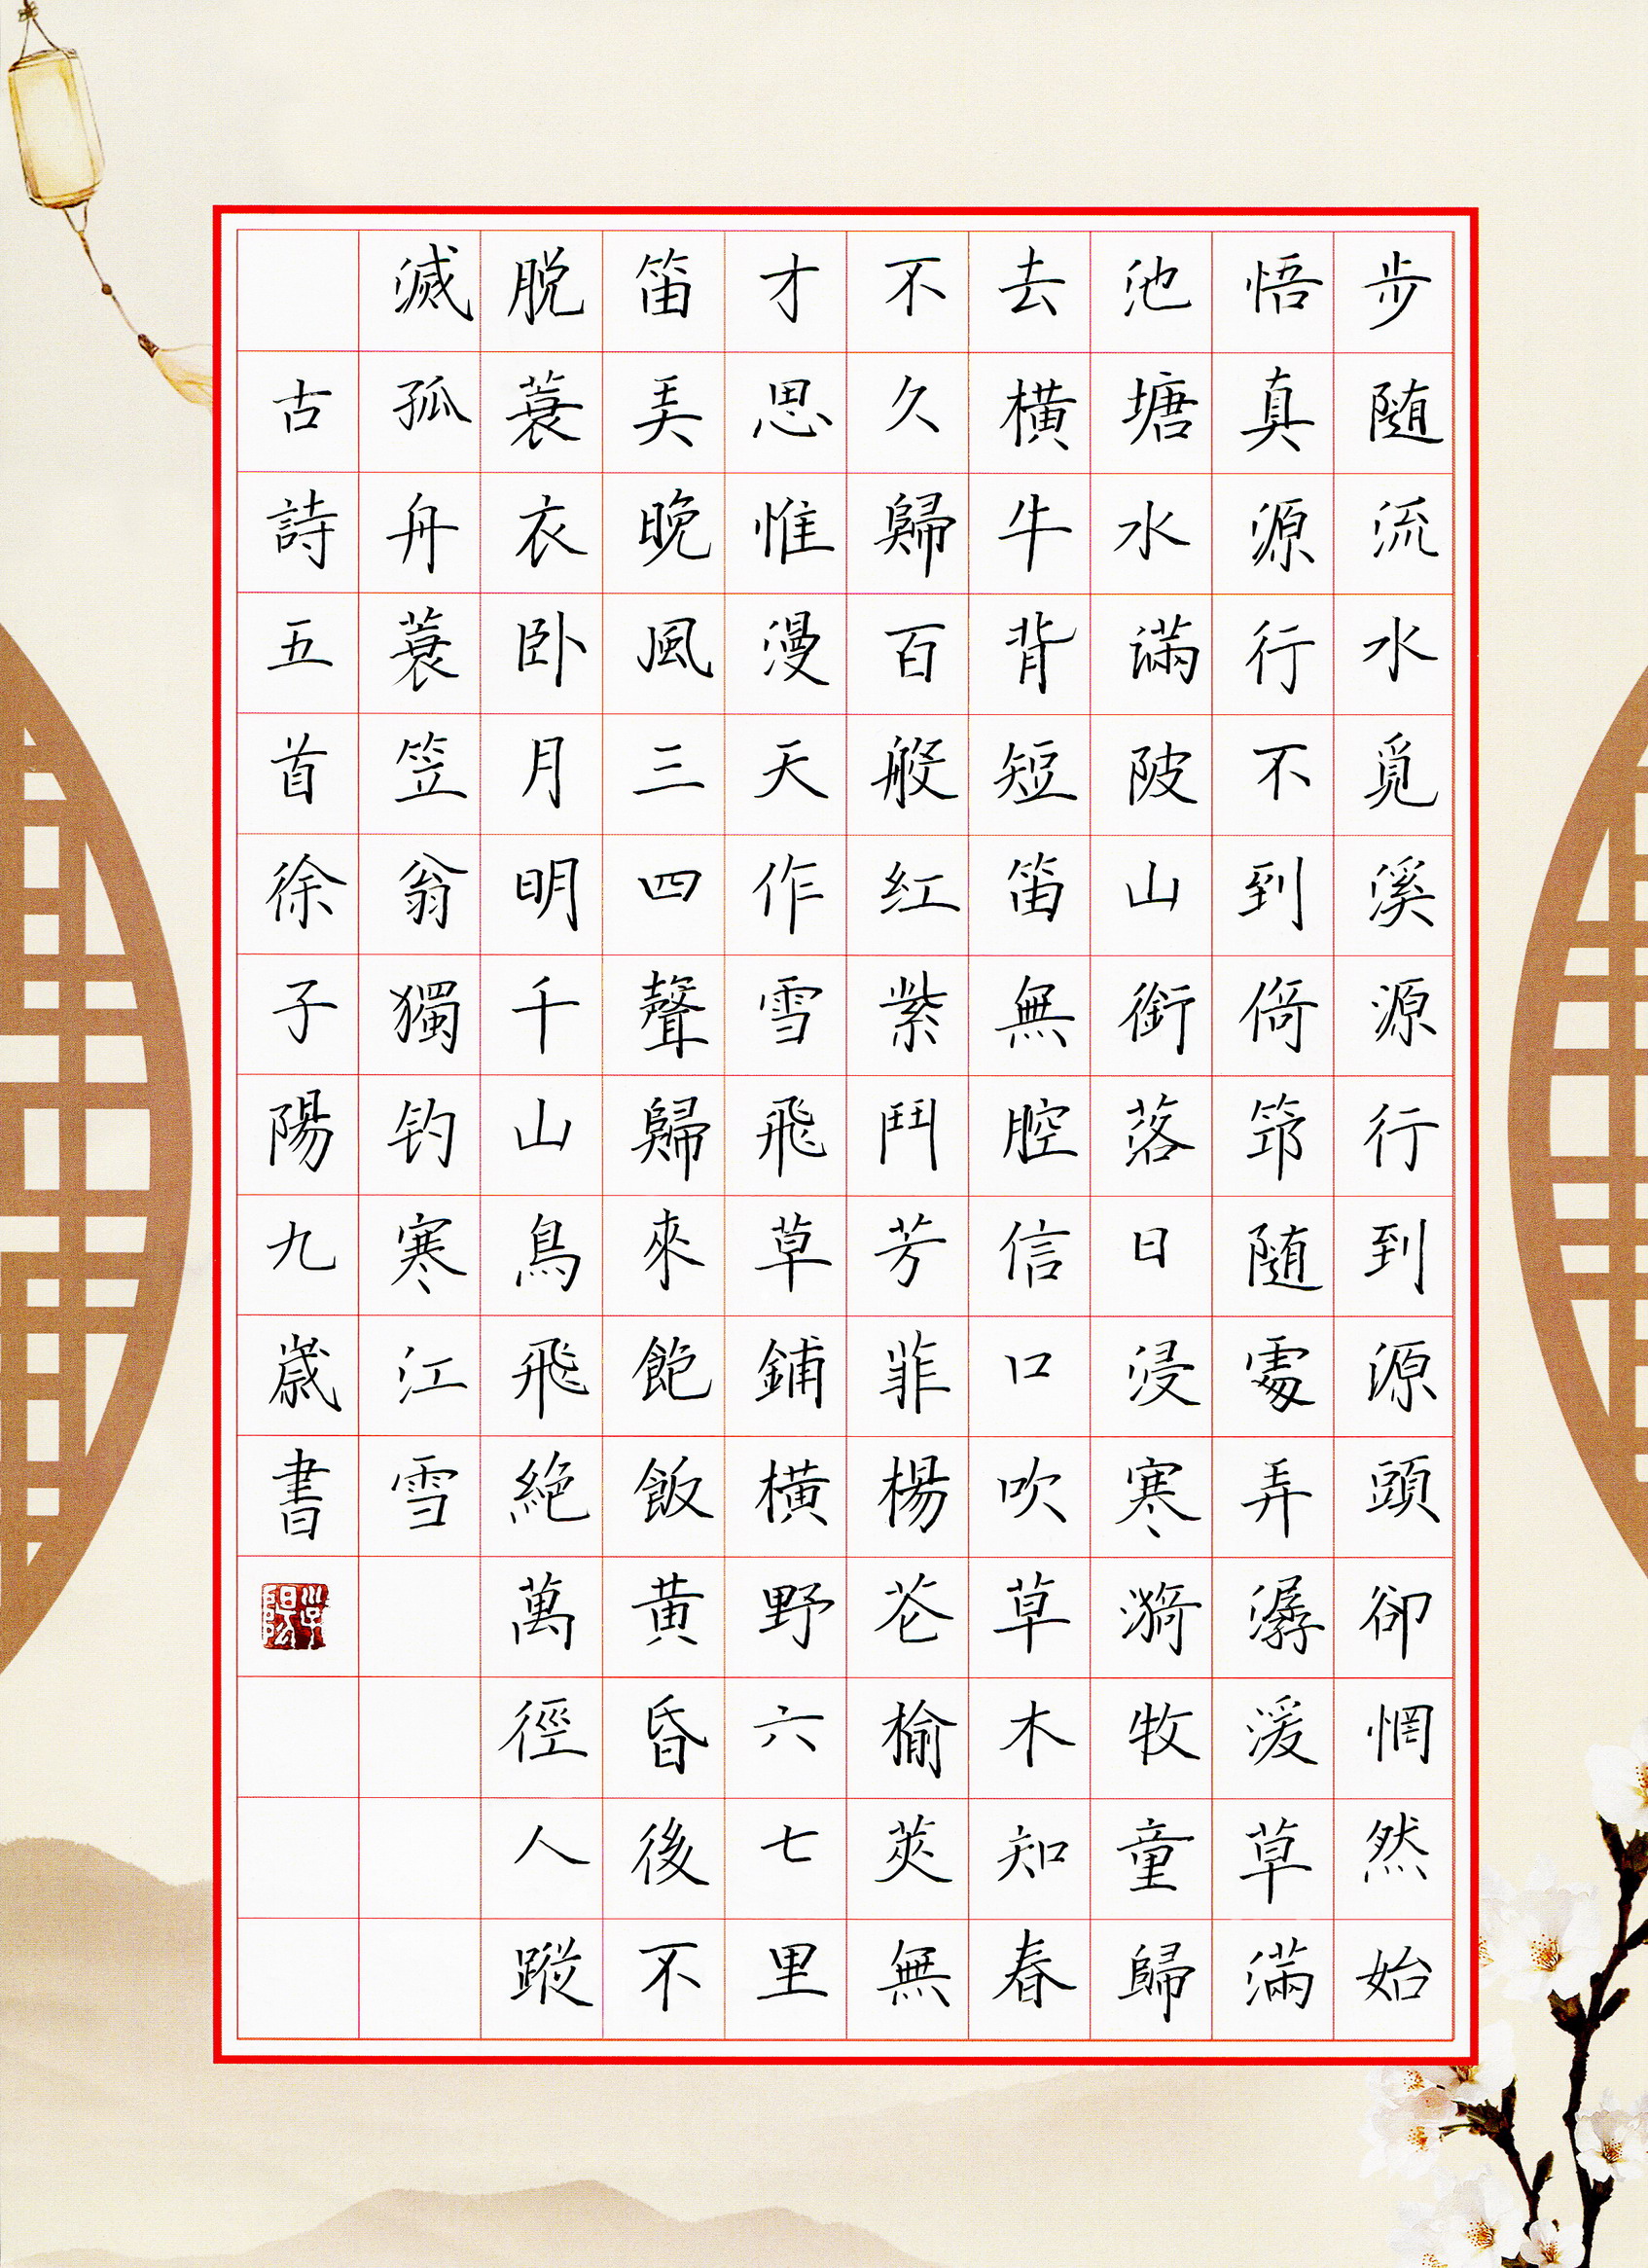 步随流水覓溪源行到源頭卻惘然始
悟真源行不到倚筇随處弄潺湲草滿
池塘水滿陂山銜落日浸寒漪牧童歸
去横牛背短笛無腔信口吹草木知春
不久歸百般红紫鬥芳菲楊花榆莢無
才思惟漫天作雪飛草鋪横野六七里
笛弄晚風三四聲歸來飽飯黄昏後不
脱蓑衣卧月明千山鳥飛絶萬徑人蹤
滅孤舟蓑笠翁獨钓寒江雪
古詩五首徐子陽九歲書